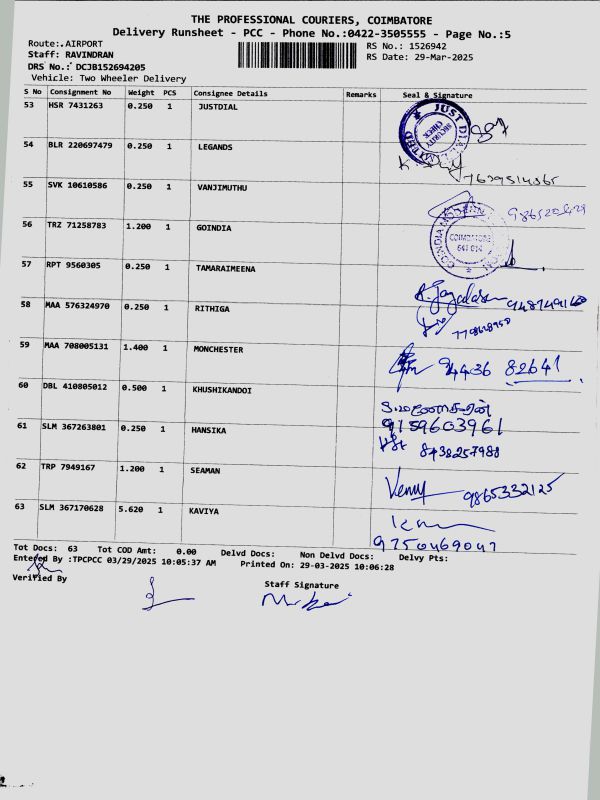 THE PROFESSIONAL COURIERS, COIMBATORE
Delivery Runsheet - PCC - Phone No.:0422-3505555 - Page No.:5
Route:.AIRPORT RS No.: 1526942
Staff: RAVINDRAN RS Date: 29-Mar-2025
DRS No.: DCJB152694205
Vehicle: Two Wheeler Delivery
S No Consignment No Weight PCS Consignee Details Remarks Seal & Signature
53 HSR 7431263 0.250 1 JUSTDIAL
JUST DIAL LIMITED
SECURITY CHECK
54 BLR 220697479 0.250 1 LEGANDS
55 SVK 10610586 0.250 1 VANJIMUTHU
56 TRZ 71258783 1.200 1 GOINDIA
COIMBATORE
641 014
57 RPT 9560305 0.250 1 TAMARAIMEENA
58 MAA 576324970 0.250 1 RITHIGA
59 MAA 708005131 1.400 1 MONCHESTER
94436 82641
60 DBL 410805012 0.500 1 KHUSHIKANDOI
9159603961
61 SLM 367263801 0.250 1 HANSIKA
8438257988
62 TRP 7949167 1.200 1 SEAMAN
Venny 9865332125
63 SLM 367170628 5.620 1 KAVIYA
9750469047
Tot Docs: 63 Tot COD Amt: 0.00 Delvd Docs: Non Delvd Docs: Delvy Pts:
Entered By :TPCPCC 03/29/2025 10:05:37 AM Printed On: 29-03-2025 10:06:28
Verified By Staff Signature